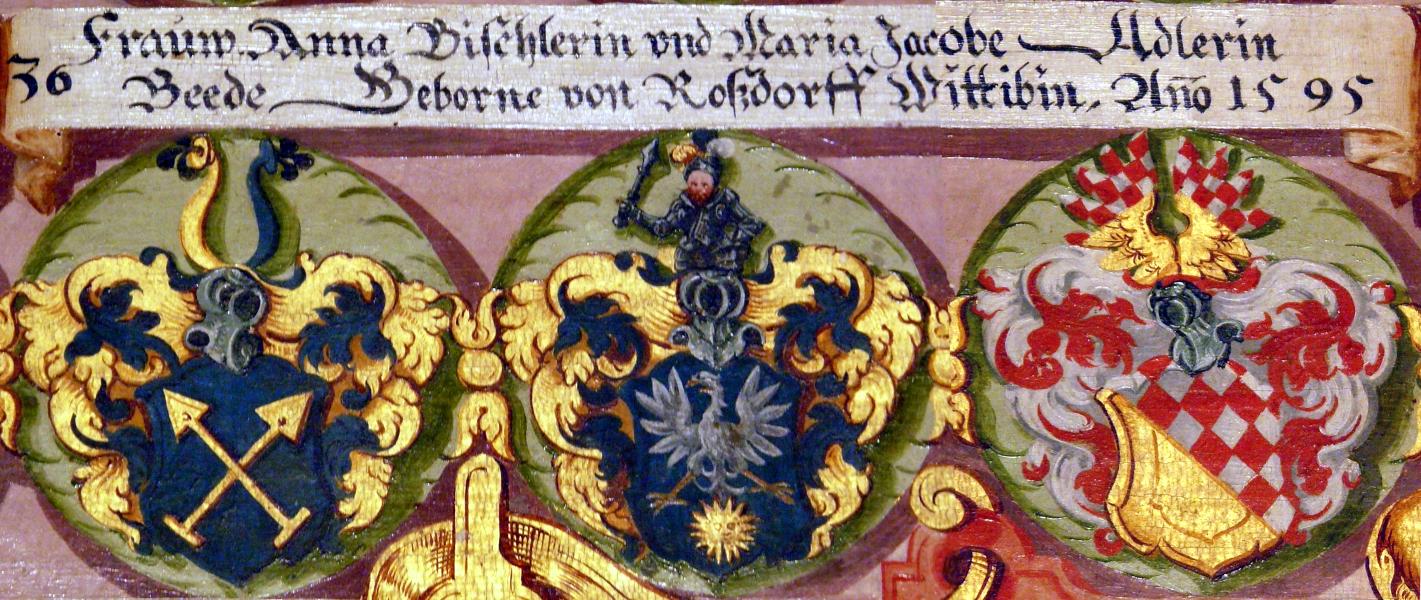 36 Frauw Anna Bischlerin vnd Maria Jacobe Adlerin
Beede Geborne von Roßdorff Wittibin. Año 1595